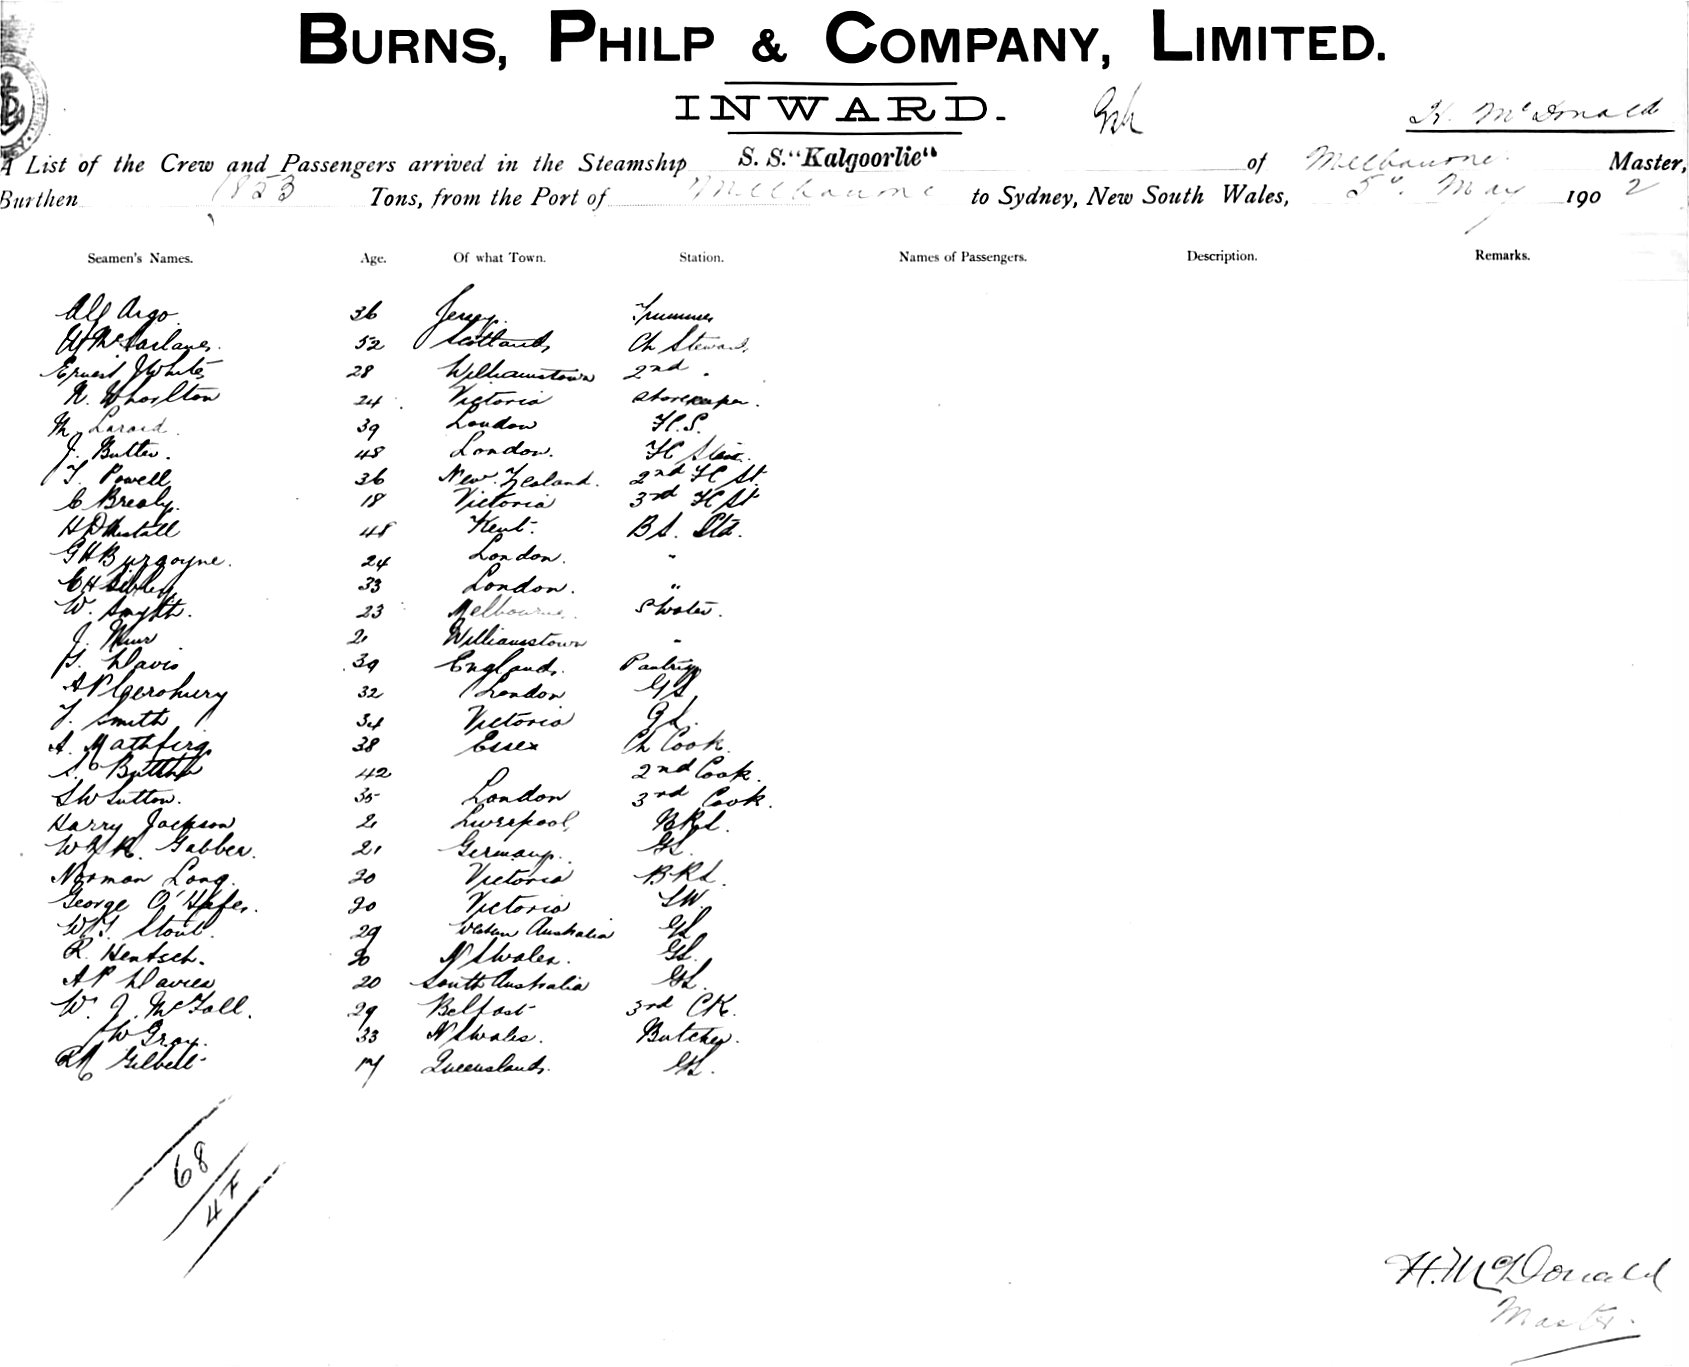 BURNS, PHILP & COMPANY, LIMITED.
INWARD.
H. McDonald
A List of the Crew and Passengers arrived in the Steamship S. S. "Kalgoorlie" of Melbourne Master,
Burthen 1823 Tons, from the Port of Melbourne to Sydney, New South Wales, 5th May 1902
Seamen's Names. Age. Of what Town. Station. Names of Passengers. Description. Remarks.
Alf Argo. 36 Jersey. Trimmer
McFarlane. 52 Scotland Ch Steward,
Ernest J White 28 Williamstown 2nd "
N. Whorlton 24 Victoria Storekeeper.
M. 39 London F.C.S.
J. Butler. 48 London. FC Stew.
T. Powell 36 New Zealand. 2nd FC St
C Brealy. 18 Victoria 3rd FC St
48 Kent. B S. Std.
G H Burgoyne. 24 London. "
E H Sibley 33 London. "
W. Smyth. 23 Melbourne. S Water.
J. Muir 21 Williamstown "
G. Davis 39 England. Pantry
32 London GS
T. Smith 34 Victoria GS.
A. 38 Essex Ch Cook.
42 2nd Cook.
S W Sutton. 35 London 3rd Cook.
Harry Jackson 21 Liverpool, BRS.
Gabber. 21 Germany. GS.
Norman Long. 20 Victoria BRS.
George 20 Victoria SW.
W T Stout. 29 Western Australia GS
R. Hentsch. 20 N S Wales. GS.
A P Davies 20 South Australia GS.
W. J. McFall. 29 Belfast 3rd CK.
W Gray. 33 N S Wales. Butcher.
Gilbert 17 Queensland. GS.
68
44
H. McDonald
Master.